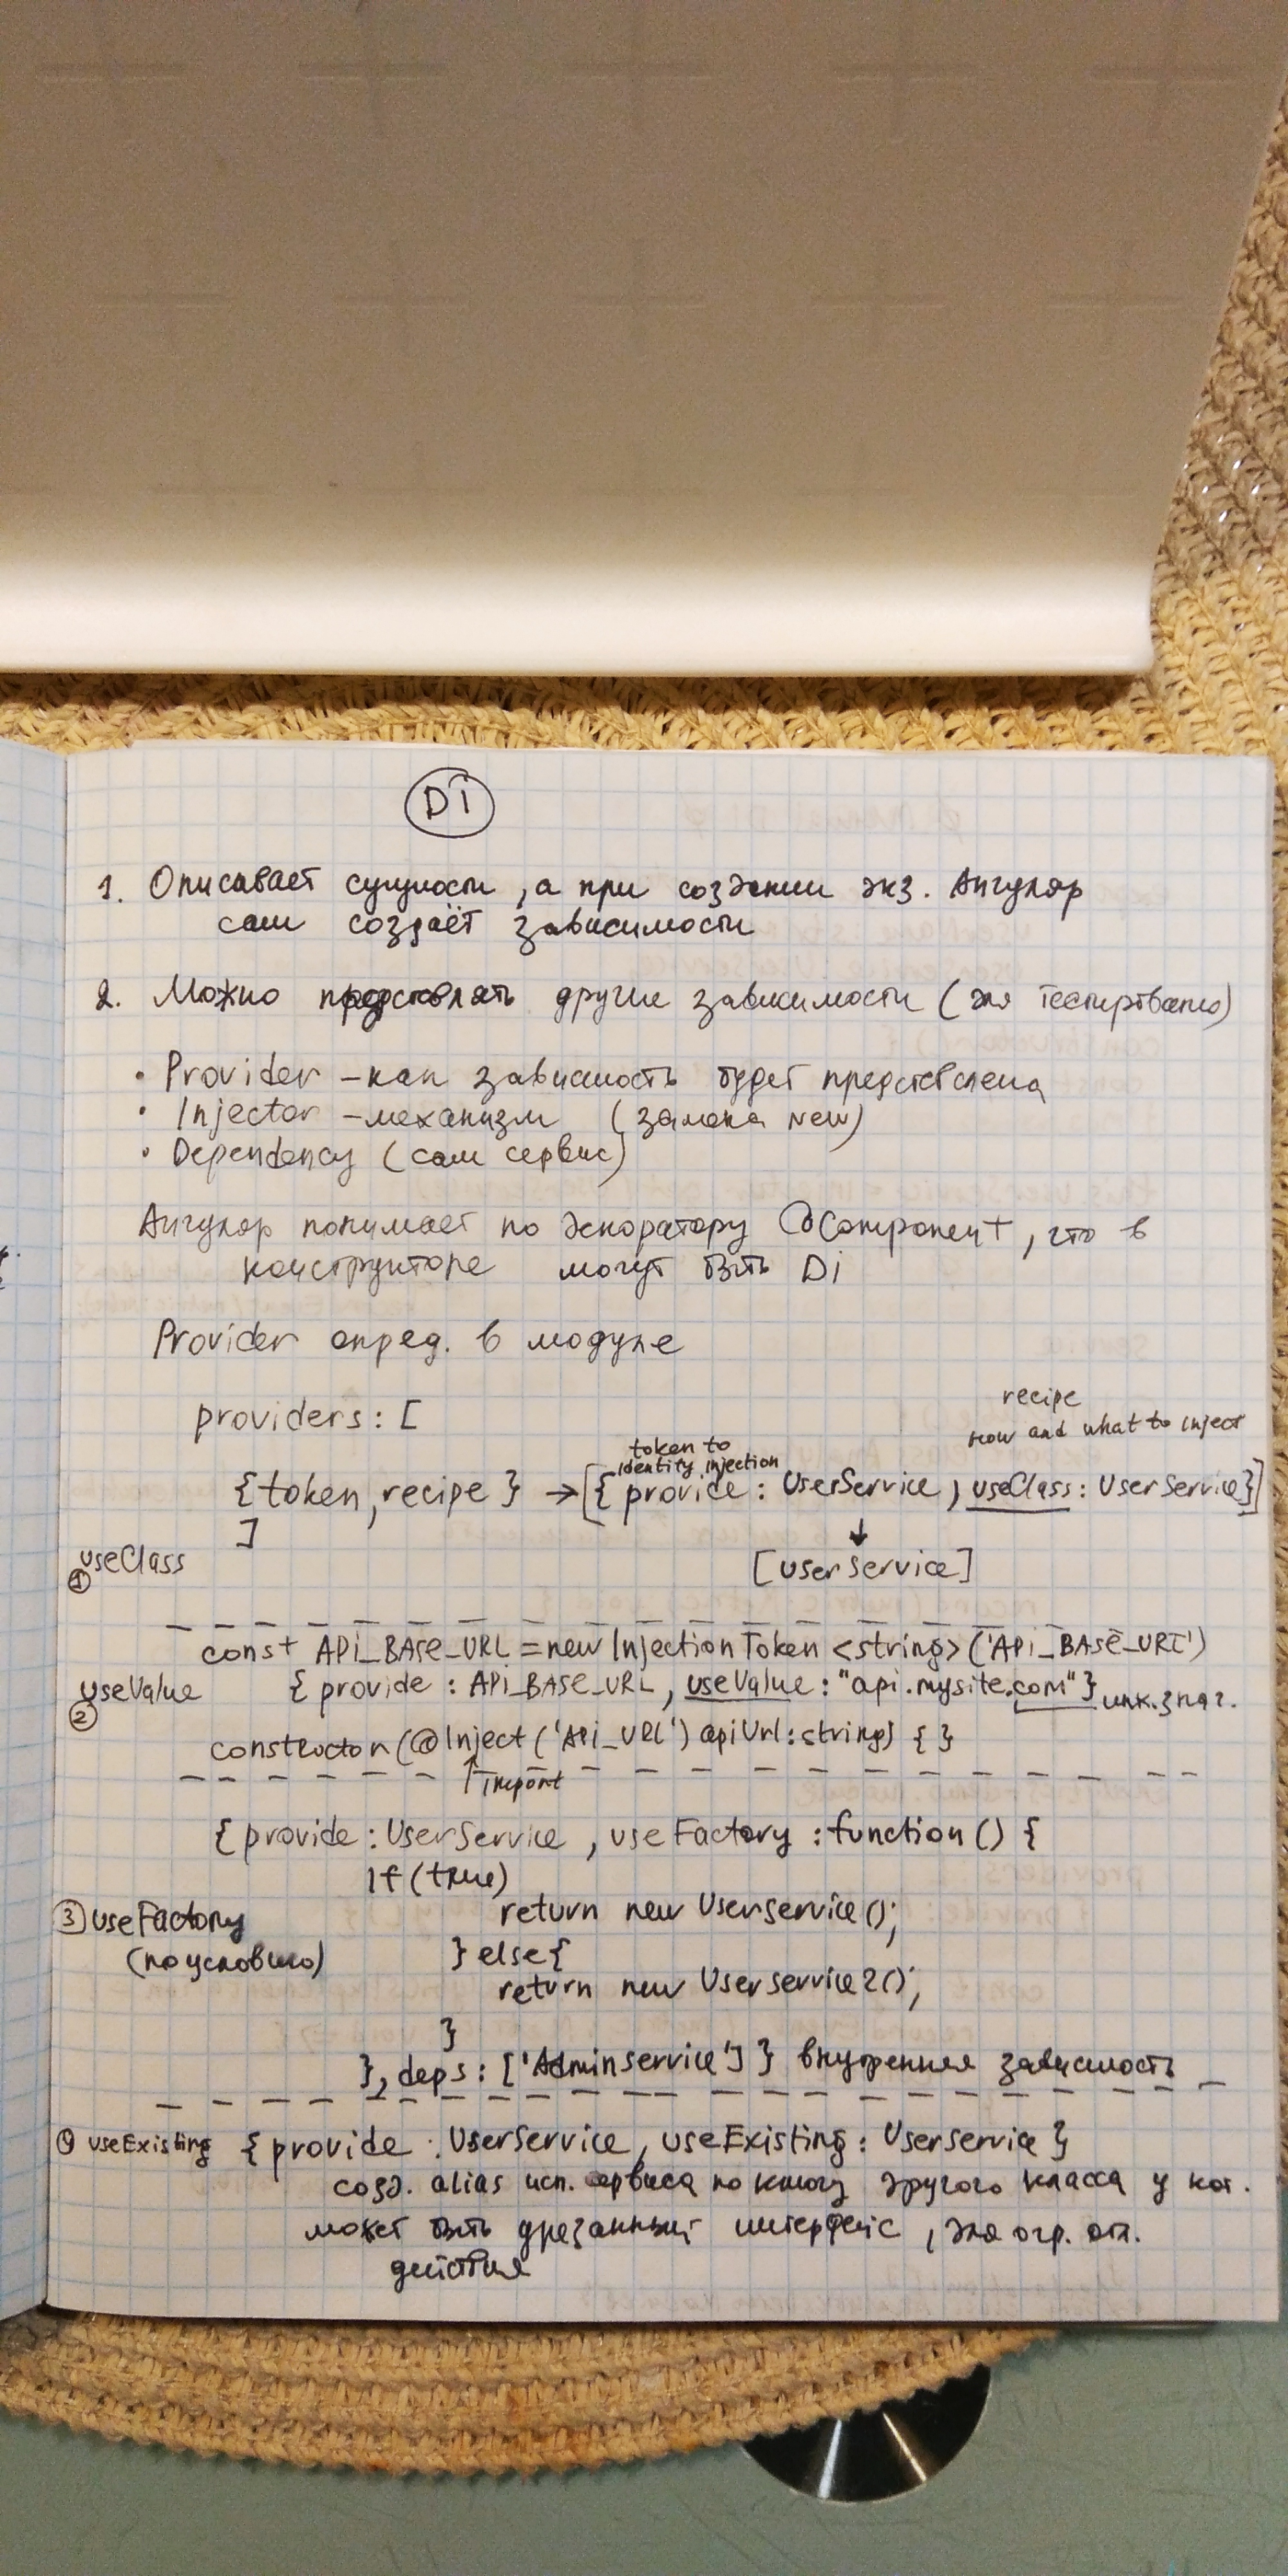 DI
1. Описывает сущности, а при создании экз. Ангуляр
сам создаёт зависимости
2. Можно представлять другие зависимости (для тестирования)
• Provider – как зависимость будет представлена
• Injector – механизм (замена new)
• Dependency (сам сервис)
Ангуляр понимает по декоратору @Component, что в
конструкторе могут быть Di
Provider опред. в модуле
providers: [
recipe
how and what to inject
token to
identity injection
{token, recipe} → [{provide: UserService, useClass: UserService}]
]
↓
useClass
①
[userService]
const API_BASE_URL = new InjectionToken <string> ('API_BASE_URL')
useValue
②
{provide: API_BASE_URL, useValue: "api.mysite.com"}
constructor (@Inject ('API_URL') apiUrl: string) { }
↑ import
{provide: UserService, useFactory: function() {
if (true)
return new Userservice();
③ useFactory
(по условию)
} else {
return new Userservice2();
}
}, deps: ['Adminservice'] } внутренняя зависимость
④ useExisting {provide: UserService, useExisting: Userservice}
созд. alias исп. сервиса по ключу другого класса у кот.
может быть урезанный интерфейс, для огр.
действия